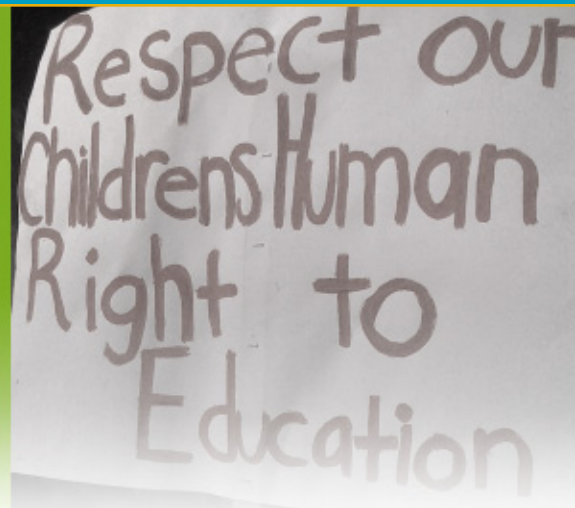 Respect our
Childrens Human
Right to
Education